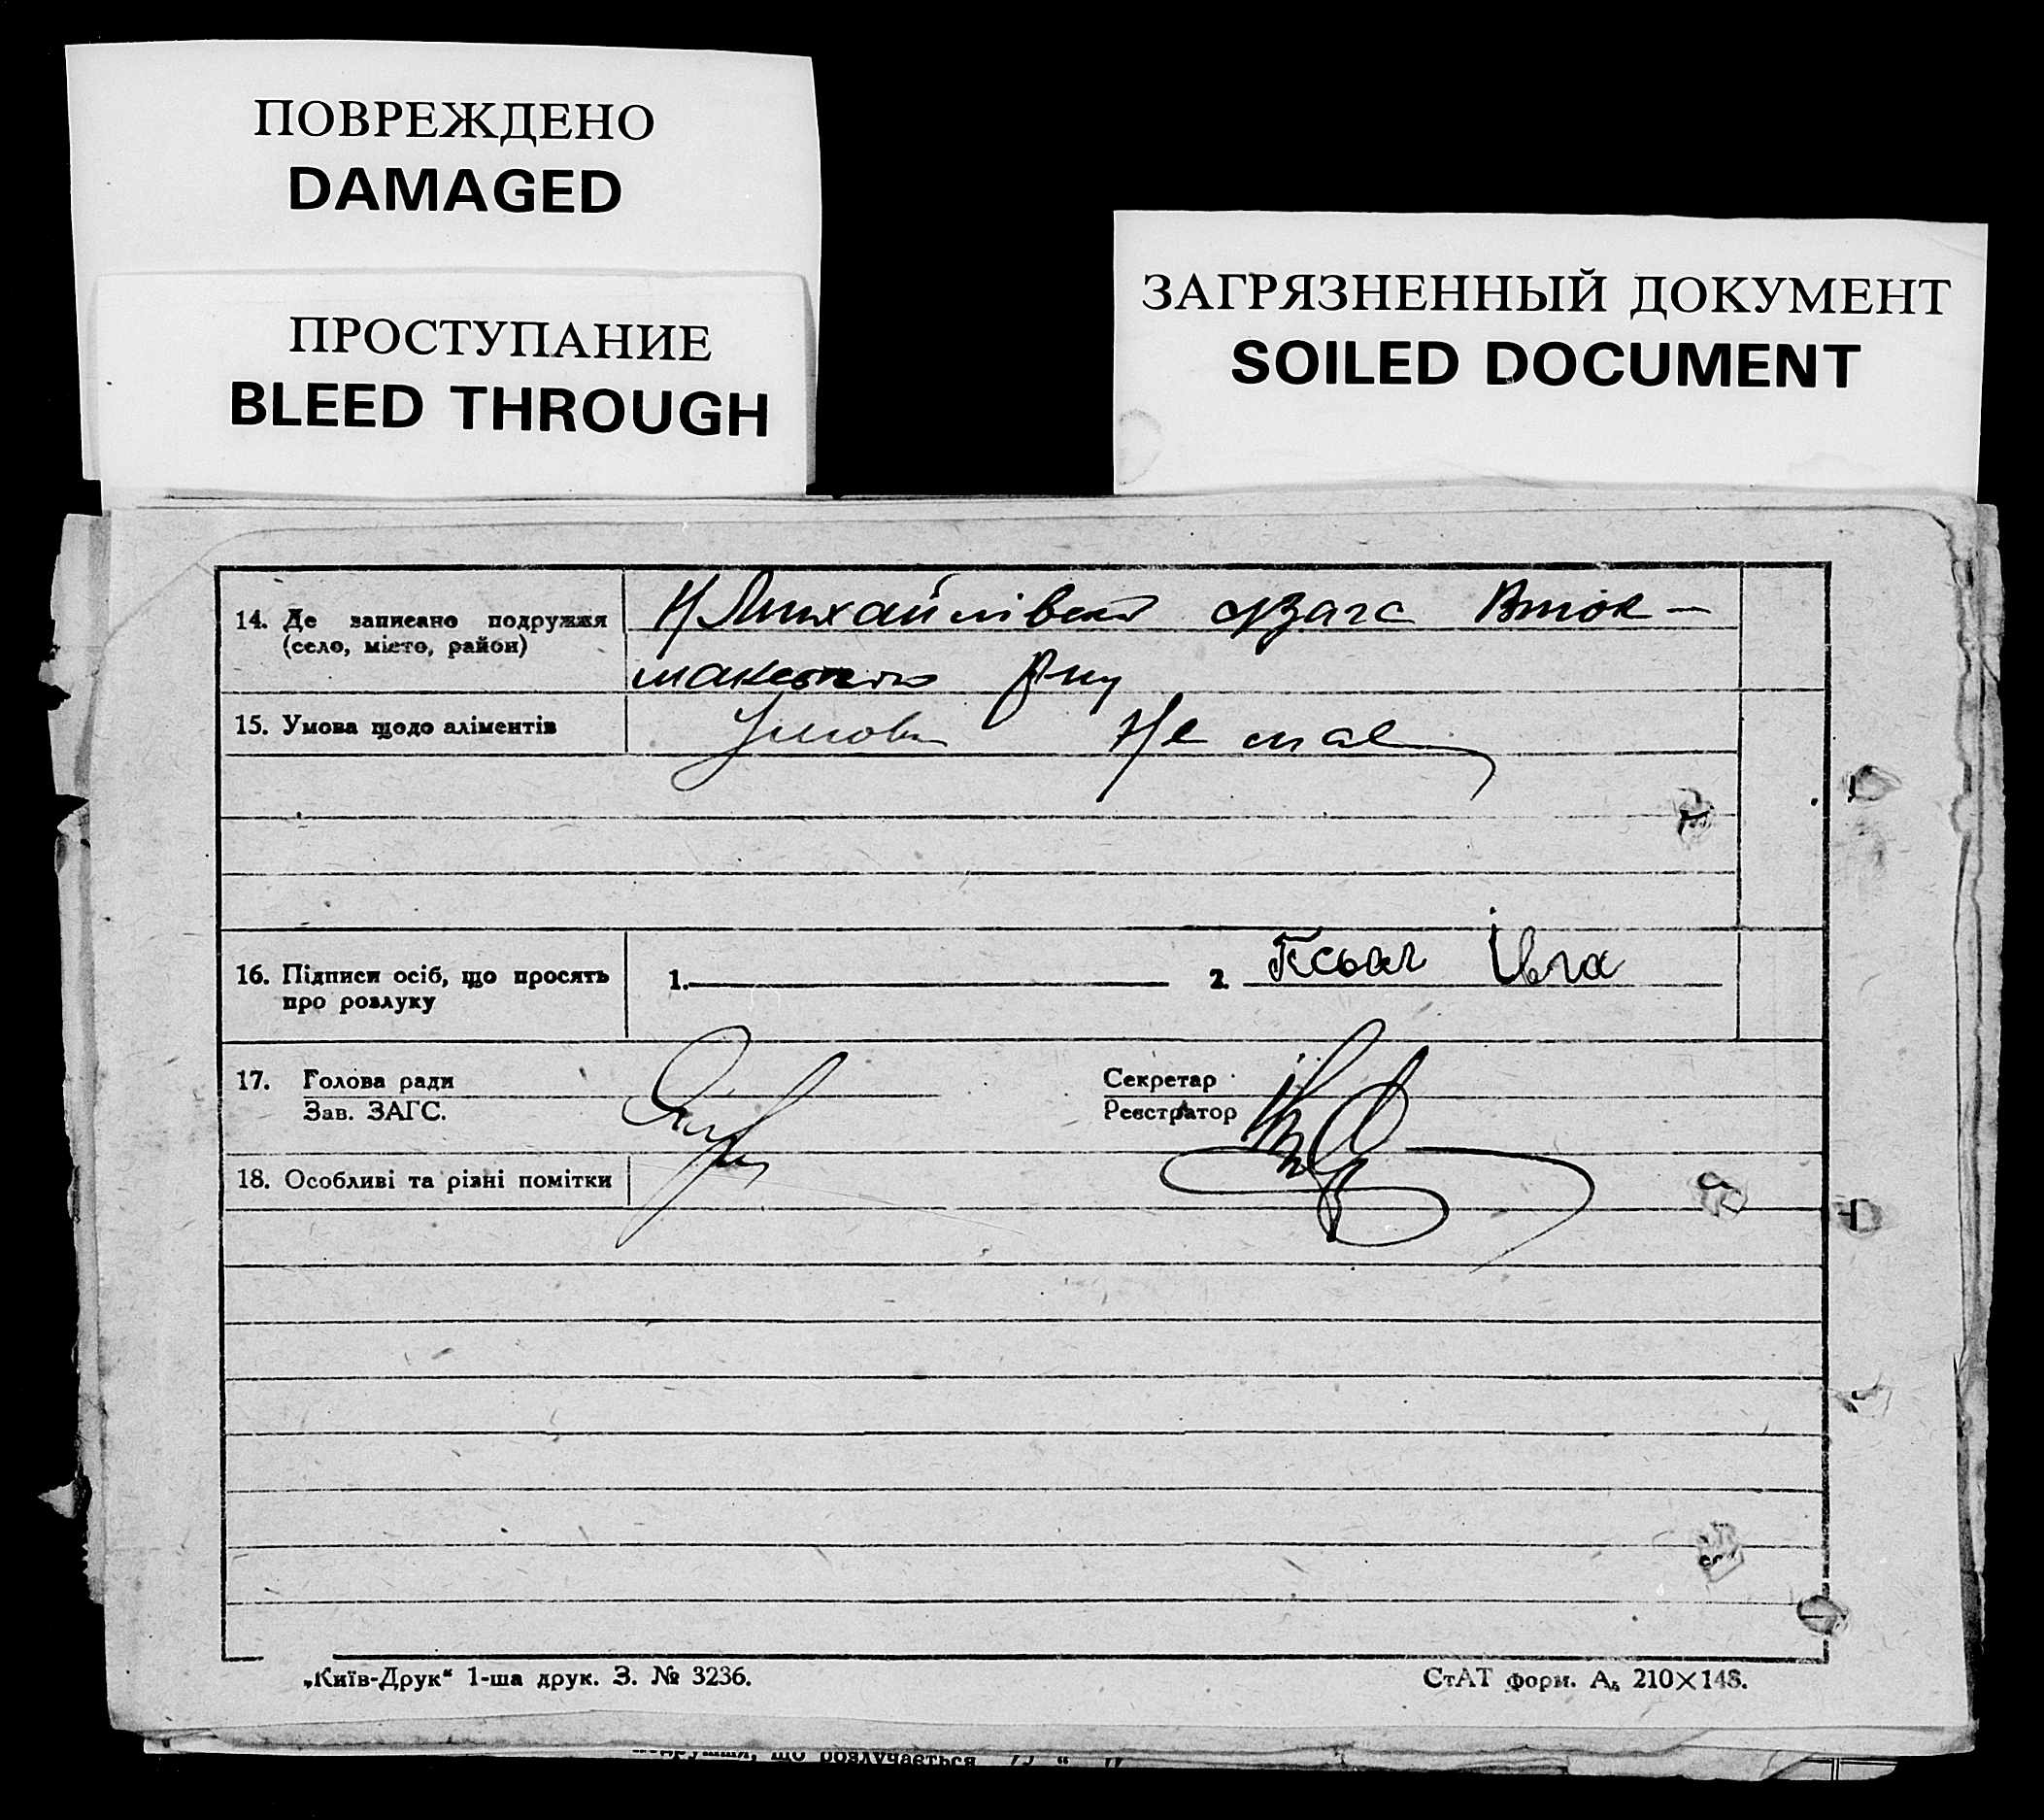 ПОВРЕЖДЕНО
DAMAGED
ПРОСТУПАНИЕ
BLEED THROUGH
ЗАГРЯЗНЕННЫЙ ДОКУМЕНТ
SOILED DOCUMENT
14. Де записано подружжя
(село, місто, район)
Н Михайлівської Загс Вток-
макського Р-ну
15. Умова щодо аліментів
Умов не має
16. Підписи осіб, що просять
про розлуку
1.
2. Псьол Івга
17. Голова ради
Зав. ЗАГС.
Секретар
Реєстратор
18. Особливі та різні помітки
„Київ-Друк“ 1-ша друк. З. № 3236.
СтАТ форм. А₅ 210×148.
що розлучається